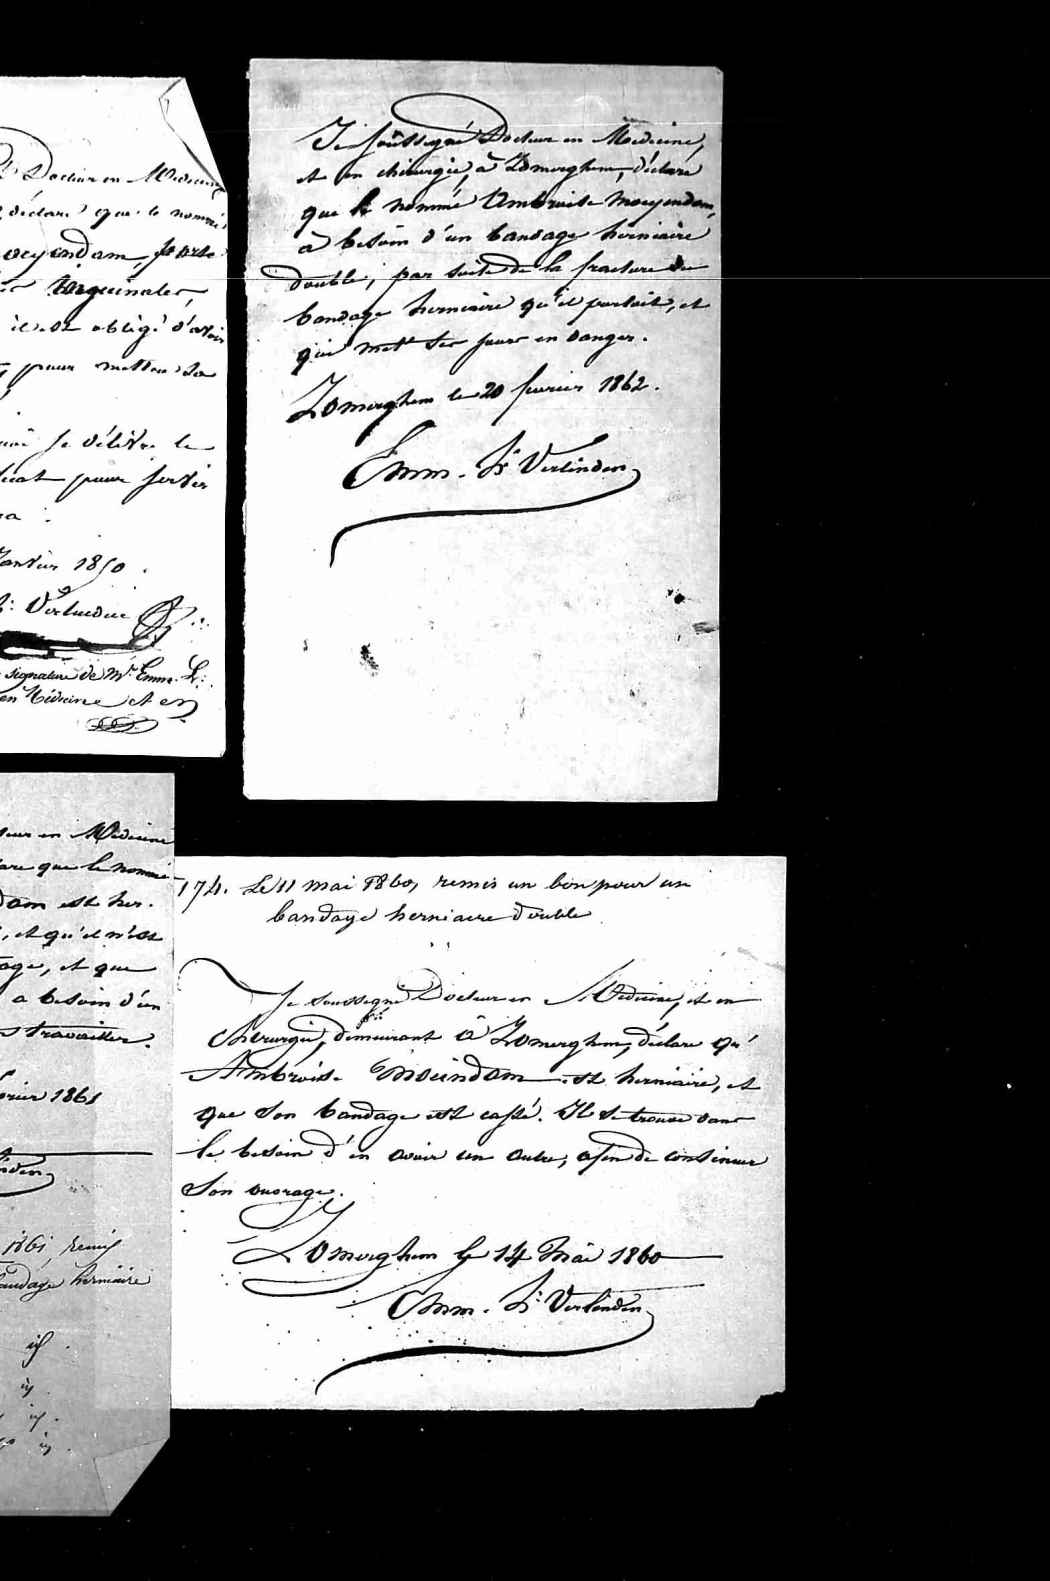 Docteur en Médecine
déclare que le nommé
ocyendam, porte
inguinales,
il est obligé d'avoir
pour mettre sa
je délivre le
pour servir
Janvier 1850.
Verlinden
signature de Mr. Emm. L:
en Médecine et en
Je soussigné Docteur en Medecine,
et en chirurgie, à Zomerghem, déclare
que le nommé Ambroise Moeyendam,
a besoin d'un bandage herniaire
double, par suite de la fracture du
bandage herniaire qu'il portait, et
qui met ses jours en danger.
Zomerghem le 20 fevrier 1862.
Emm. Ls Verlinden
en Médecine
que le nommé
dam est her-
, et qu'il n'est
age, et que
a besoin d'un
travailler.
vrier 1861
nden
1861 remis
bandage herniaire
174. Le 11 mai 1860, remis un bon pour un
bandage herniaire double
Je soussigné Docteur en Médecine, et en
Chirurgie, demeurant à Zomerghem, déclare qu'
Ambroise Moeindam est herniaire, et
que son bandage est cassé. Il se trouve dans
le besoin d'en avoir un autre, afin de continuer
son ouvrage.
Zomerghem le 14 Mai 1860
Emm. Ls Verlinden